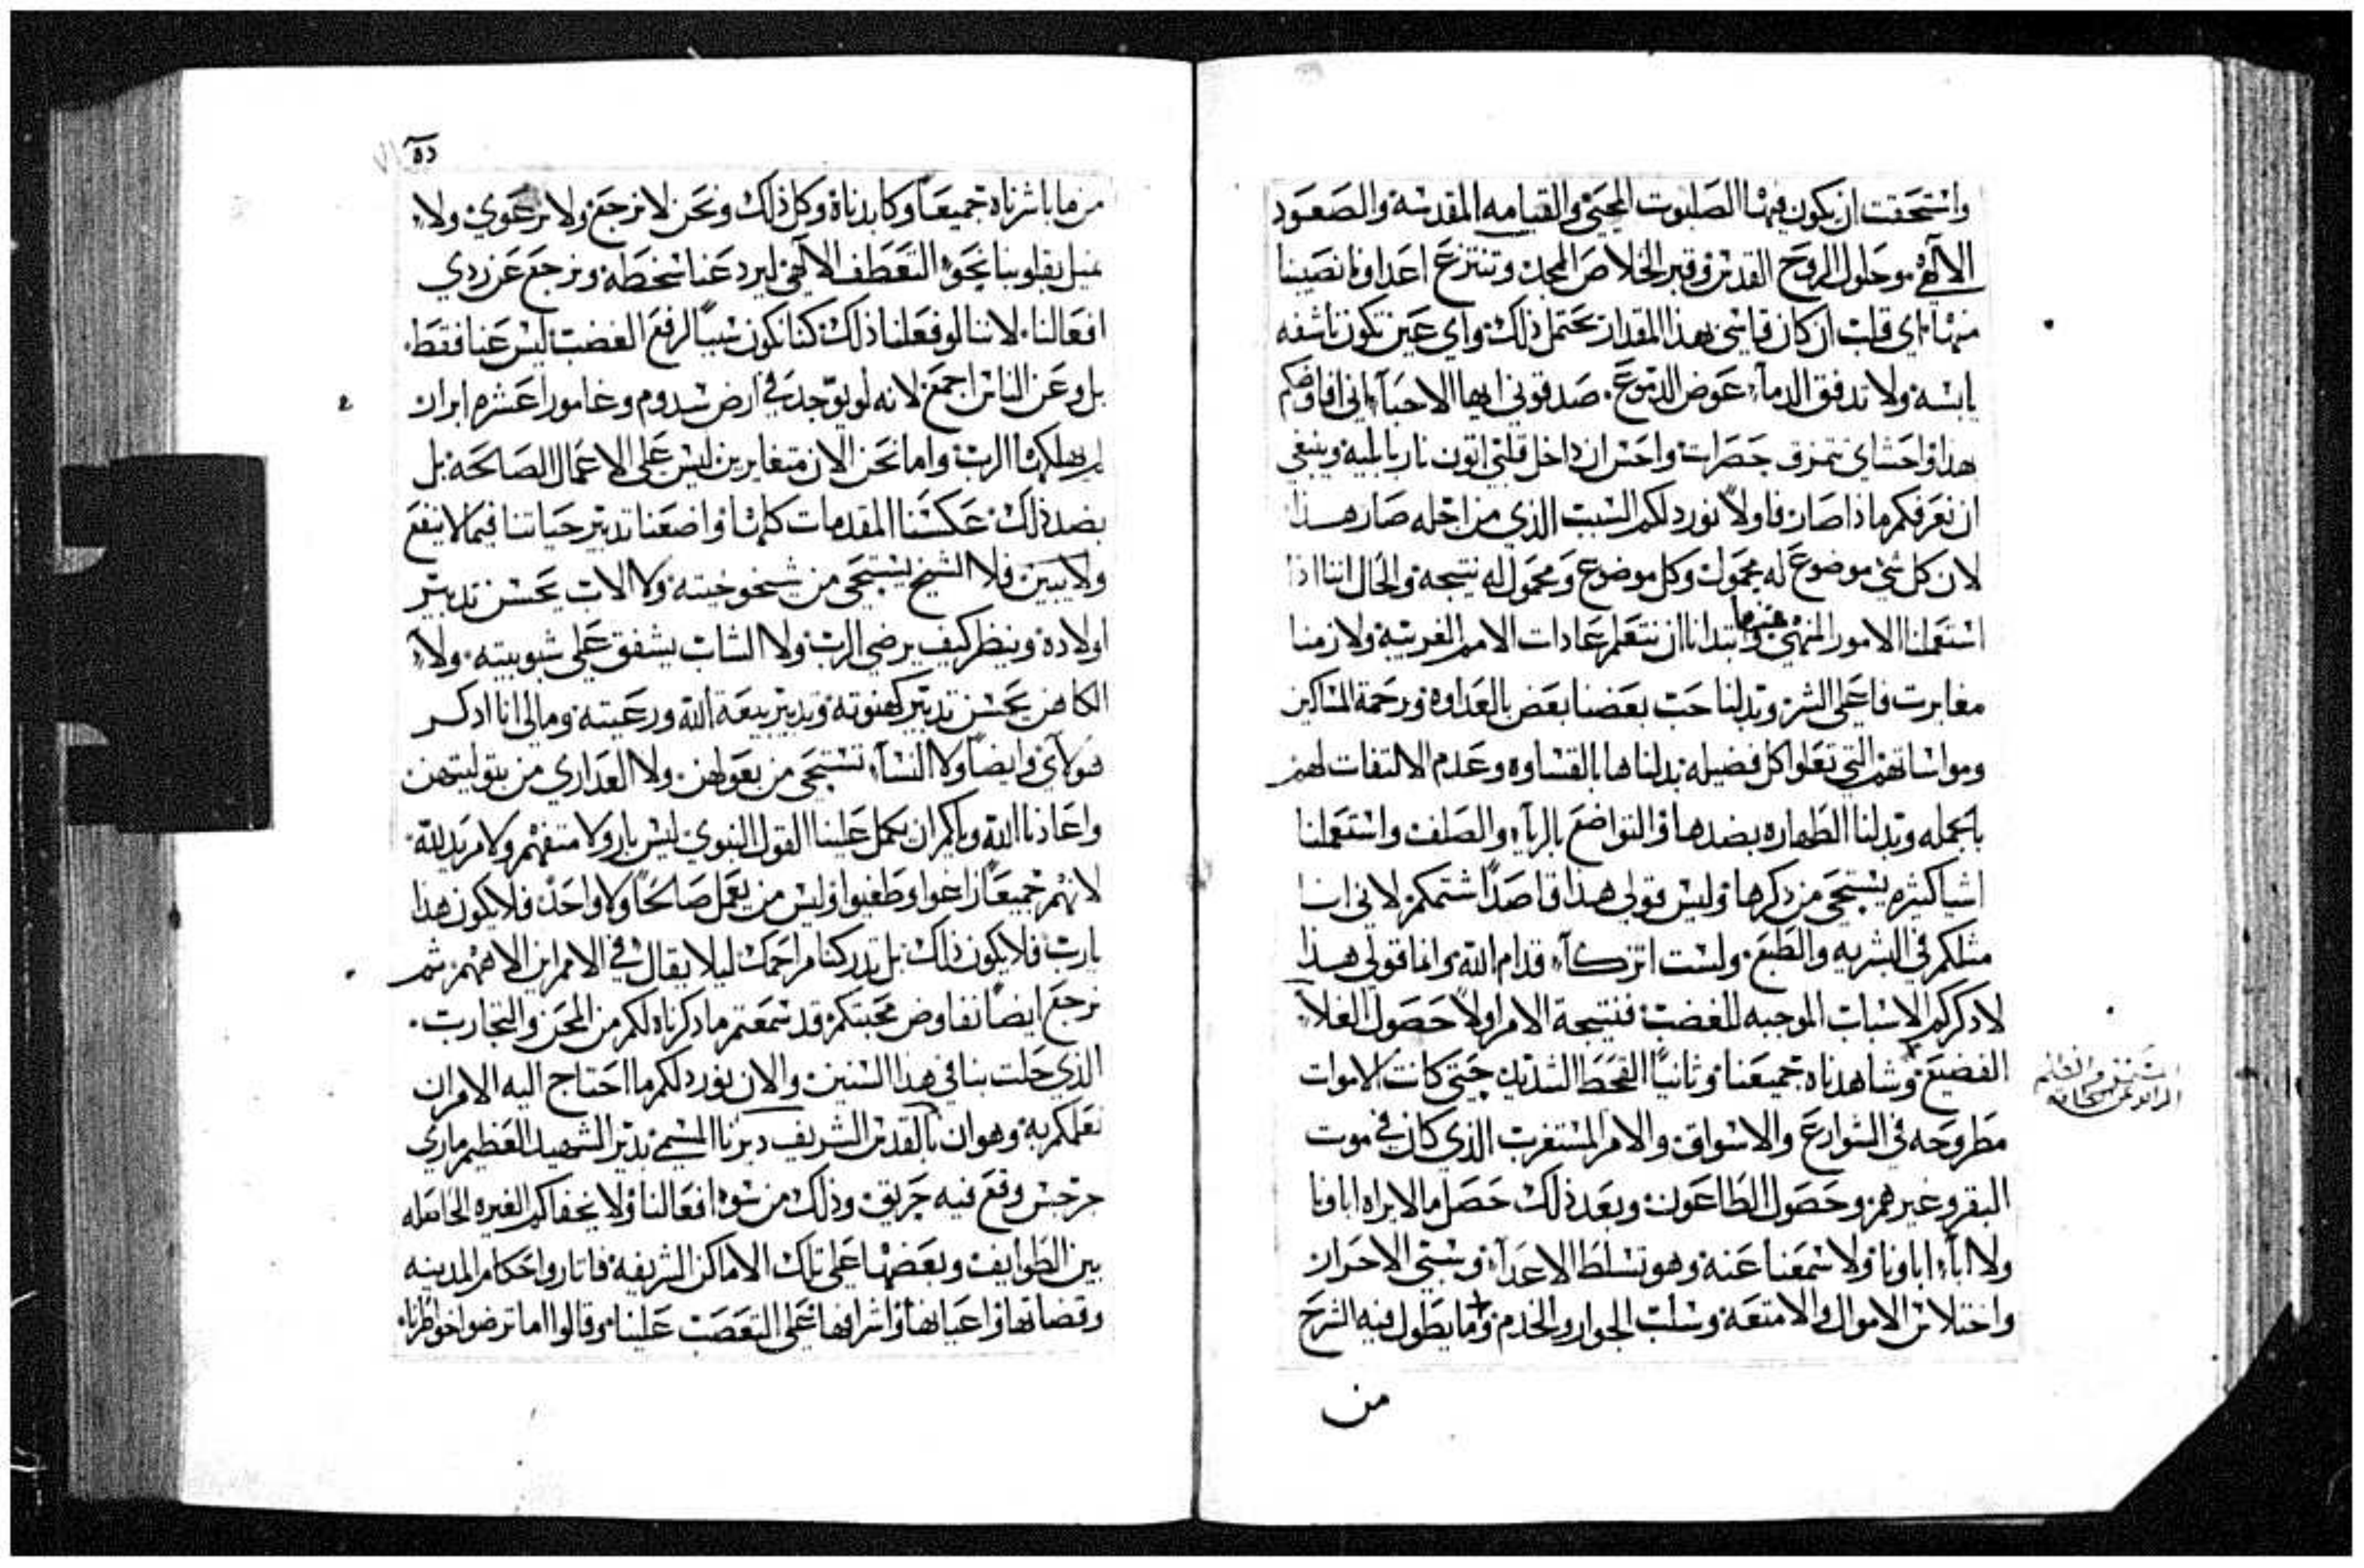 واستحقت ان يكون فيها الصلبوت المحيي والقيامه المقدسة والصعود
الالاهي وحلول الروح القدس وقبر الخلاص المجد وتنتزع اعداونا نصيبنا
منها اي قلب ان كان قاسي بهذا المقدار يحتمل ذلك واي عين تكون ناشفه
يابسه ولا تدفق الدمآء عوض الدموع. صدقوني ايها الاحبآء اني افاوضكم
بهذا واحشاي تتمزق حصرات واحس ان داخل قلبي اتون نار بابلية وينبغي
ان نعرفكم ماذا صار فاولاً نورد لكم السبب الذي من اجله صار هذا
لان كل شي موضوع له محمول وكل موضوع ومحمول له نتيجه والحال اننا اذا
استعملنا الامور المنهي عنها وابتدانا ان نتعلم عادات الامم الغريبة ولازمنا
مغابرت فاعلي الشر وبدلنا حب بعضنا بعض بالعداوه ورحمة المساكين
ومواساتهم التي تعلوا كل فضيله بدلناها بالقساوه وعدم الالتفات لهم
بالجمله وبدلنا الطهاره بضدها والتواضع بالريآء والصلف واستعملنا
اشيا كثيره يستحى من ذكرها وليس قولي هذا قاصداً شتمكم لاني انا
مثلكم في البشريه والطبع. ولست اتزكآء قدام الله وانما قولي هذا
لاذكركم الاسباب الموجبه للغضب فنتيجة الامر اولاً حصول الغلآء
الفضيع وشاهدناه جميعنا وثانياً القحط الشديد حتى كانت الاموات
مطروحه في الشوارع والاسواق والامر المستغرب الذي كان في موت
البقر وغيرهم وحصول الطاعون وبعد ذلك حصل مالايراه اباونا
ولا ابآء اباونا ولا سمعنا عنه وهو تسلط الاعدآء وسبي الاحرار
واختلاس الاموال والامتعه وسلب الجوار والخدم وما يطول فيه الشرح
من
ده
من ما باشرناه جميعاً وكابدناه وكل ذلك ونحن لا نرجع ولا نرعوي ولا
نميل بقلوبنا نحو التعطف الالاهي ليرد عنا سخطه ونرجع عن ردي
افعالنا. لاننا لو فعلنا ذلك كنا نكون سبباً لرفع الغضب ليس عنا فقط.
بل وعن الناس اجمع لانه لو يوجد في ارض سدوم وغامورا عشره ابرار
لم يهلكها الرب واما نحن الان متغايرين ليس على الاعمال الصالحه بل
بضد ذلك عكسنا المقدمات كلها واضعنا تدبير حياتنا فيما لا ينفع
ولا يبين فلا الشيخ يستحى من شيخوخيته ولا الاب يحسن تدبير
اولاده وينظر كيف يرضي الرب ولا الشاب يشفق على شبوبيته. ولا
الكاهن يحسن تدبير كهنوته وتدبير بيعة الله ورعيته ومالي انا اذكر
هولآي وايضاً ولا النسآء تستحى من بعولهن. ولا العذاري من بتوليتهن
واعاذنا الله واياكم ان يكمل علينا القول النبوي ليس بار ولا متفهم ولا مريد لله.
لانهم جميعاً زاغوا وطغيوا وليس من يعمل صالحاً ولا واحد فلا يكون هذا
يارب فلا يكون ذلك بل تدركنا مراحمك ليلا يقال في الامم اين الاههم ثم
نرجع ايضاً نفاوض محبتكم قد سمعتم ماذكرناه لكم من المحن والتجارب.
الذي حلت بنا في هذا السنين والان نورد لكم ما احتاج اليه الامر ان
نعلمكم به وهو ان بالقدس الشريف ديرنا المسمي بدير الشهيد العظيم ماري
جرجس وقع فيه حريق وذلك من سوء افعالنا ولا يخفاكم الغيره الحاصله
بين الطوايف وبعضها على تلك الاماكن الشريفه فاثاروا حكام المدينه
وقضاتها واعيانها واشرافها على التعصب علينا وقالوا اما ترضوا خواطرنا.